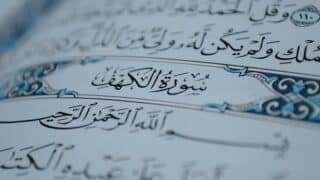 وَقُلِ ٱلْحَمْدُ لِلَّهِ ١١٠
ٱلْمُلْكِ وَلَمْ يَكُن لَّهُۥ وَلِىٌّ مِّنَ ٱلذُّ
سُورَةُ الكَهْفِ
بِسْمِ ٱللَّهِ ٱلرَّحْمَٰنِ ٱلرَّحِيمِ
عَلَىٰ عَبْدِهِ ٱلْكِتَٰ